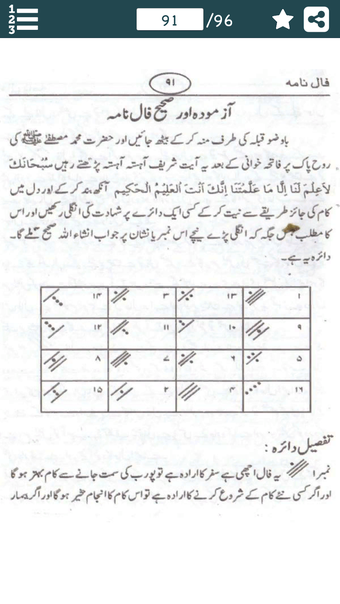 1 2 3
91 /96
فال نامہ
۹۱
آزمودہ اور صحیح فال نامہ
باوضو قبلہ کی طرف منہ کر کے بیٹھ جائیں اور حضرت محمد مصطفےٰ ﷺ کی
روح پاک پر فاتحہ خوانی کے بعد یہ آیت شریف آہستہ آہستہ پڑھتے رہیں سُبْحَانَكَ
لَاعِلْمَ لَنَا اِلَّا مَا عَلَّمْتَنَا اِنَّكَ اَنْتَ الْعَلِیْمُ الْحَكِیْم آنکھ بند کر کے اور دل میں
کام کی جائز طریقے سے نیت کر کے کسی ایک دائرے پر شہادت کی انگلی رکھیں اور اس
کا مطلب جس جگہ کہ انگلی پڑے نیچے اس نمبر یا نشان پر جواب انشاء اللہ صحیح ملے گا۔
دائرہ یہ ہے۔
۱ ۱۳ ۳ ۱۴
۹ ۱۰ ۱۱ ۱۲
۵ ۶ ۷ ۸
۱۶ ۴ ۲ ۱۵
تفصیل دائرہ :
نمبر ۱ یہ فال اچھی ہے سفر کا ارادہ ہے تو پورب کی سمت جانے سے کام بہتر ہو گا
اور اگر کسی نئے کام کے شروع کرنے کا ارادہ ہے تو اس کام کا انجام خیر ہو گا اور اگر بیمار